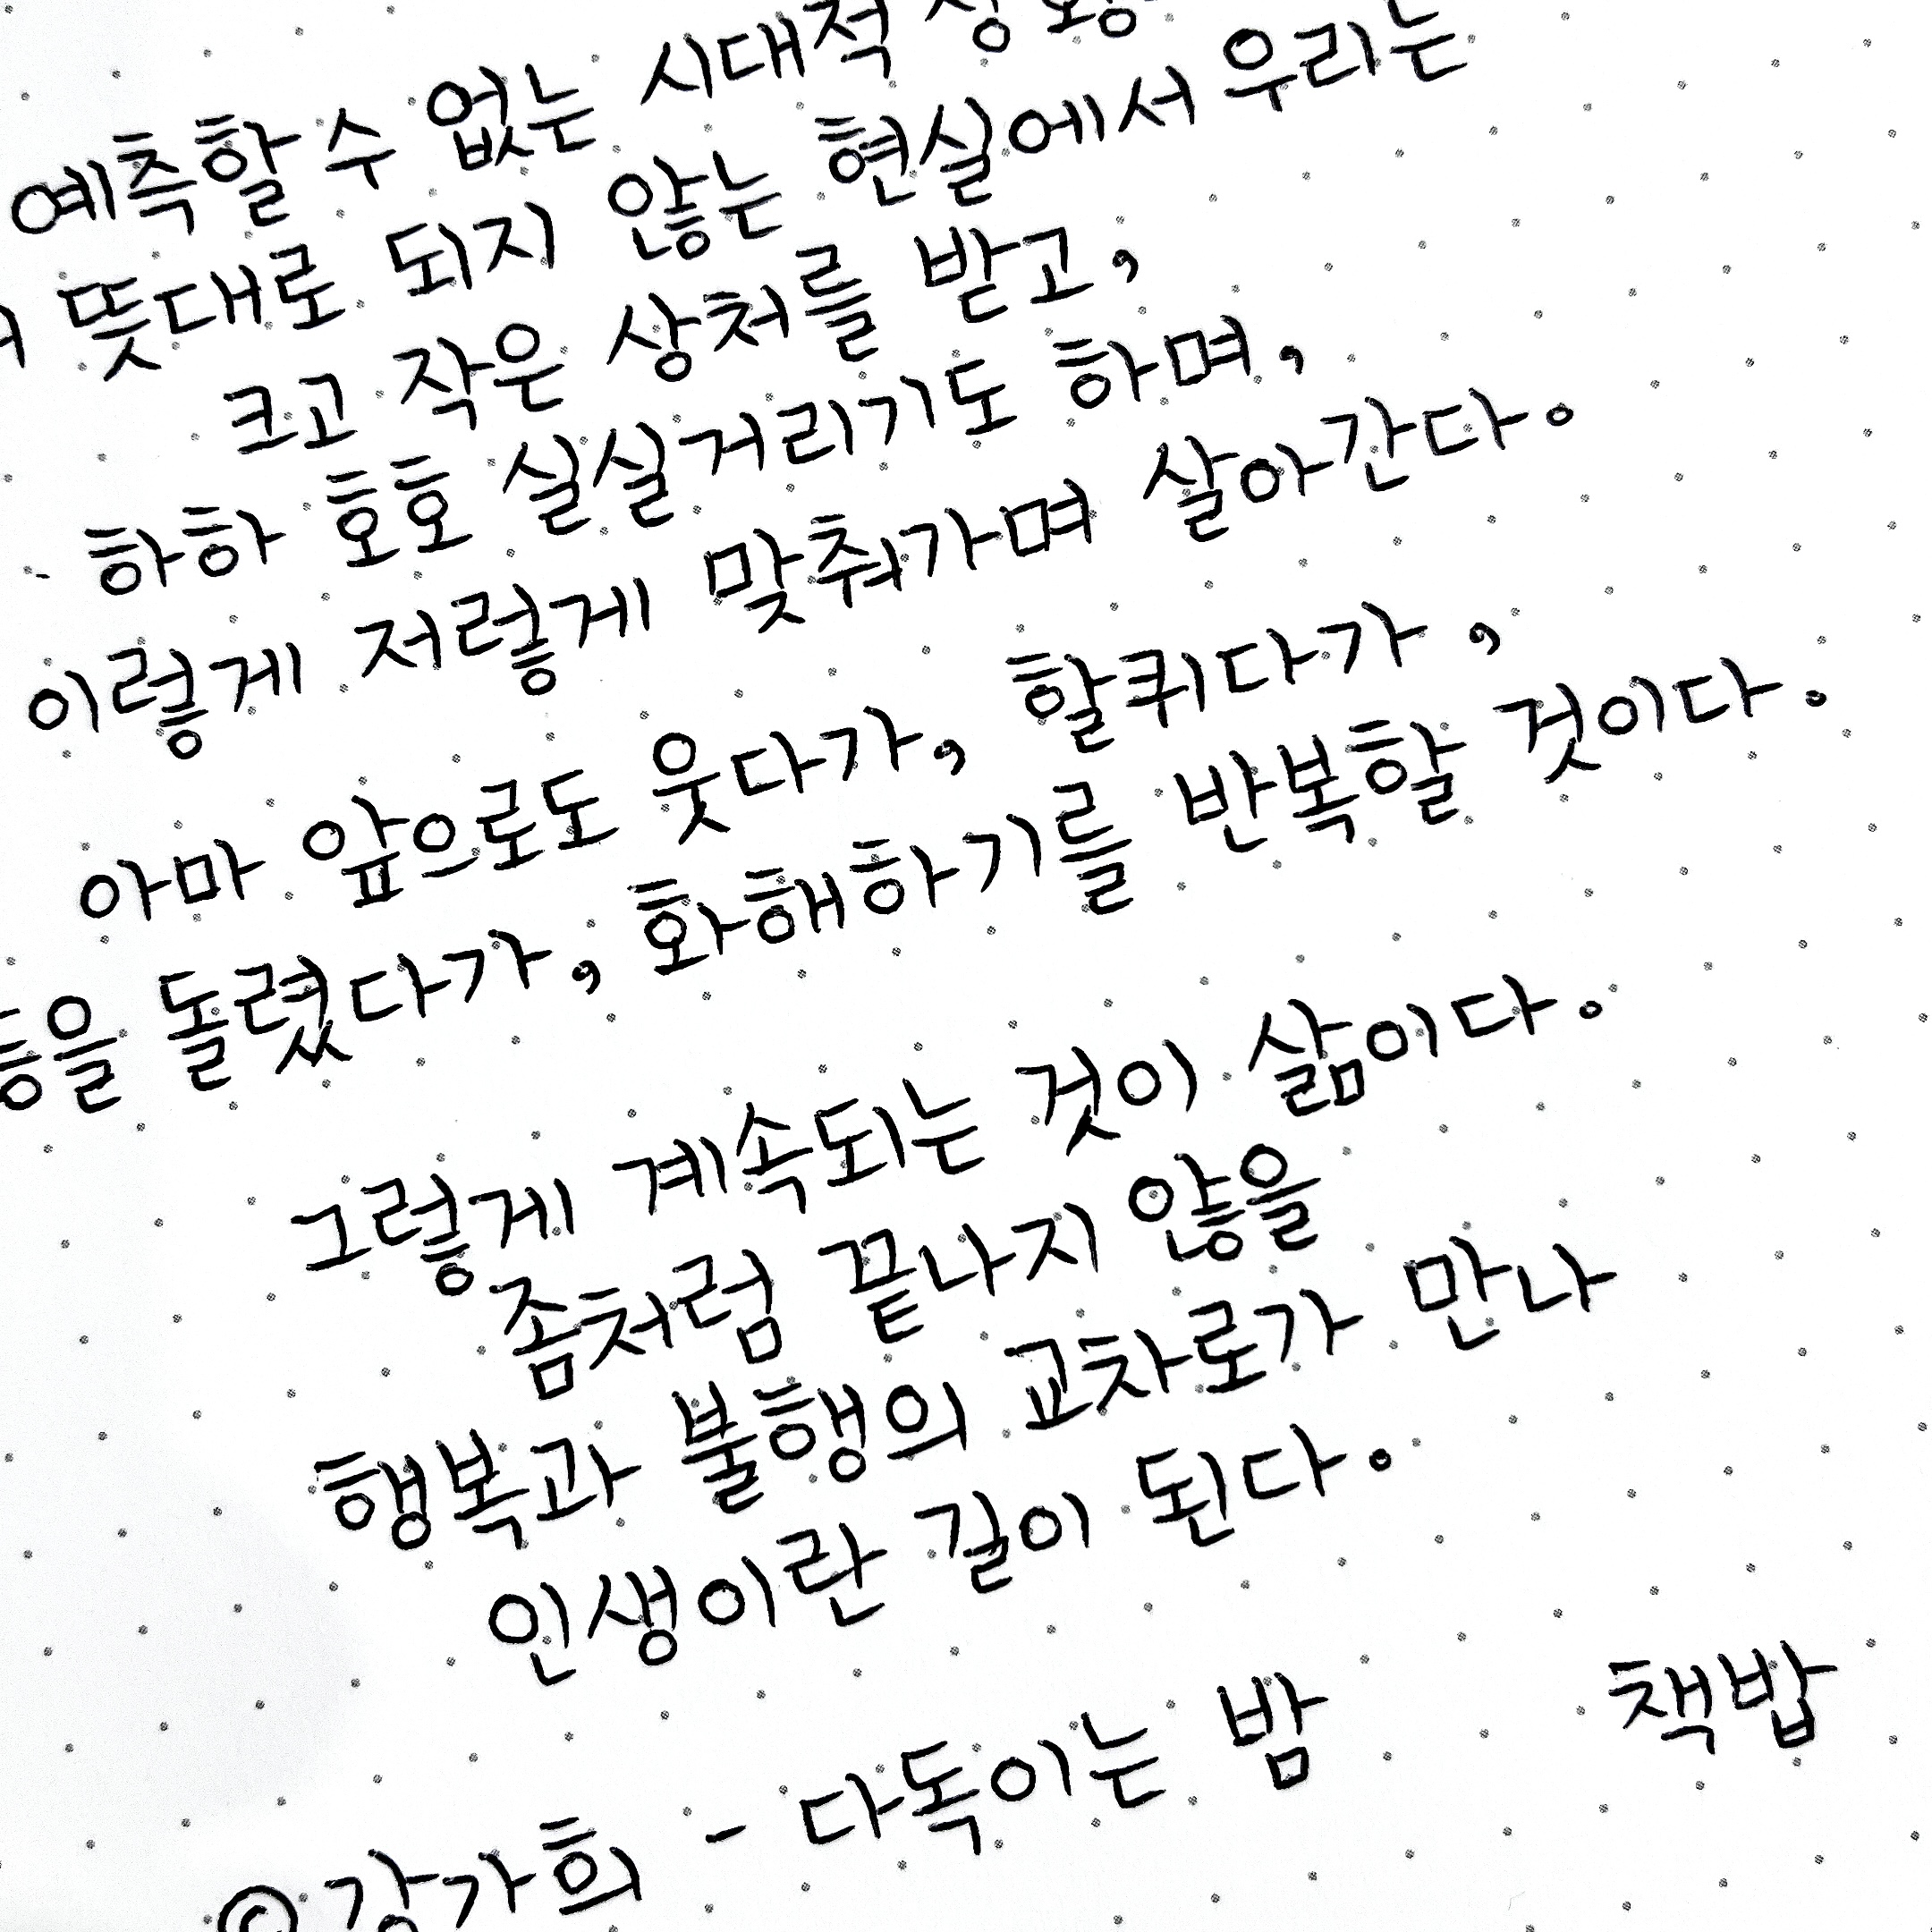 예측할 수 없는 시대적
뜻대로 되지 않는 현실에서 우리는
크고 작은 상처를 받고,
하하 호호 실실거리기도 하며,
이렇게 저렇게 맞춰가며 살아간다.
아마 앞으로도 웃다가, 할퀴다가,
등을 돌렸다가, 화해하기를 반복할 것이다.
그렇게 계속되는 것이 삶이다.
좀처럼 끝나지 않을
행복과 불행의 교차로가 만나
인생이란 길이 된다.
책밥
© 강가희 - 다독이는 밤